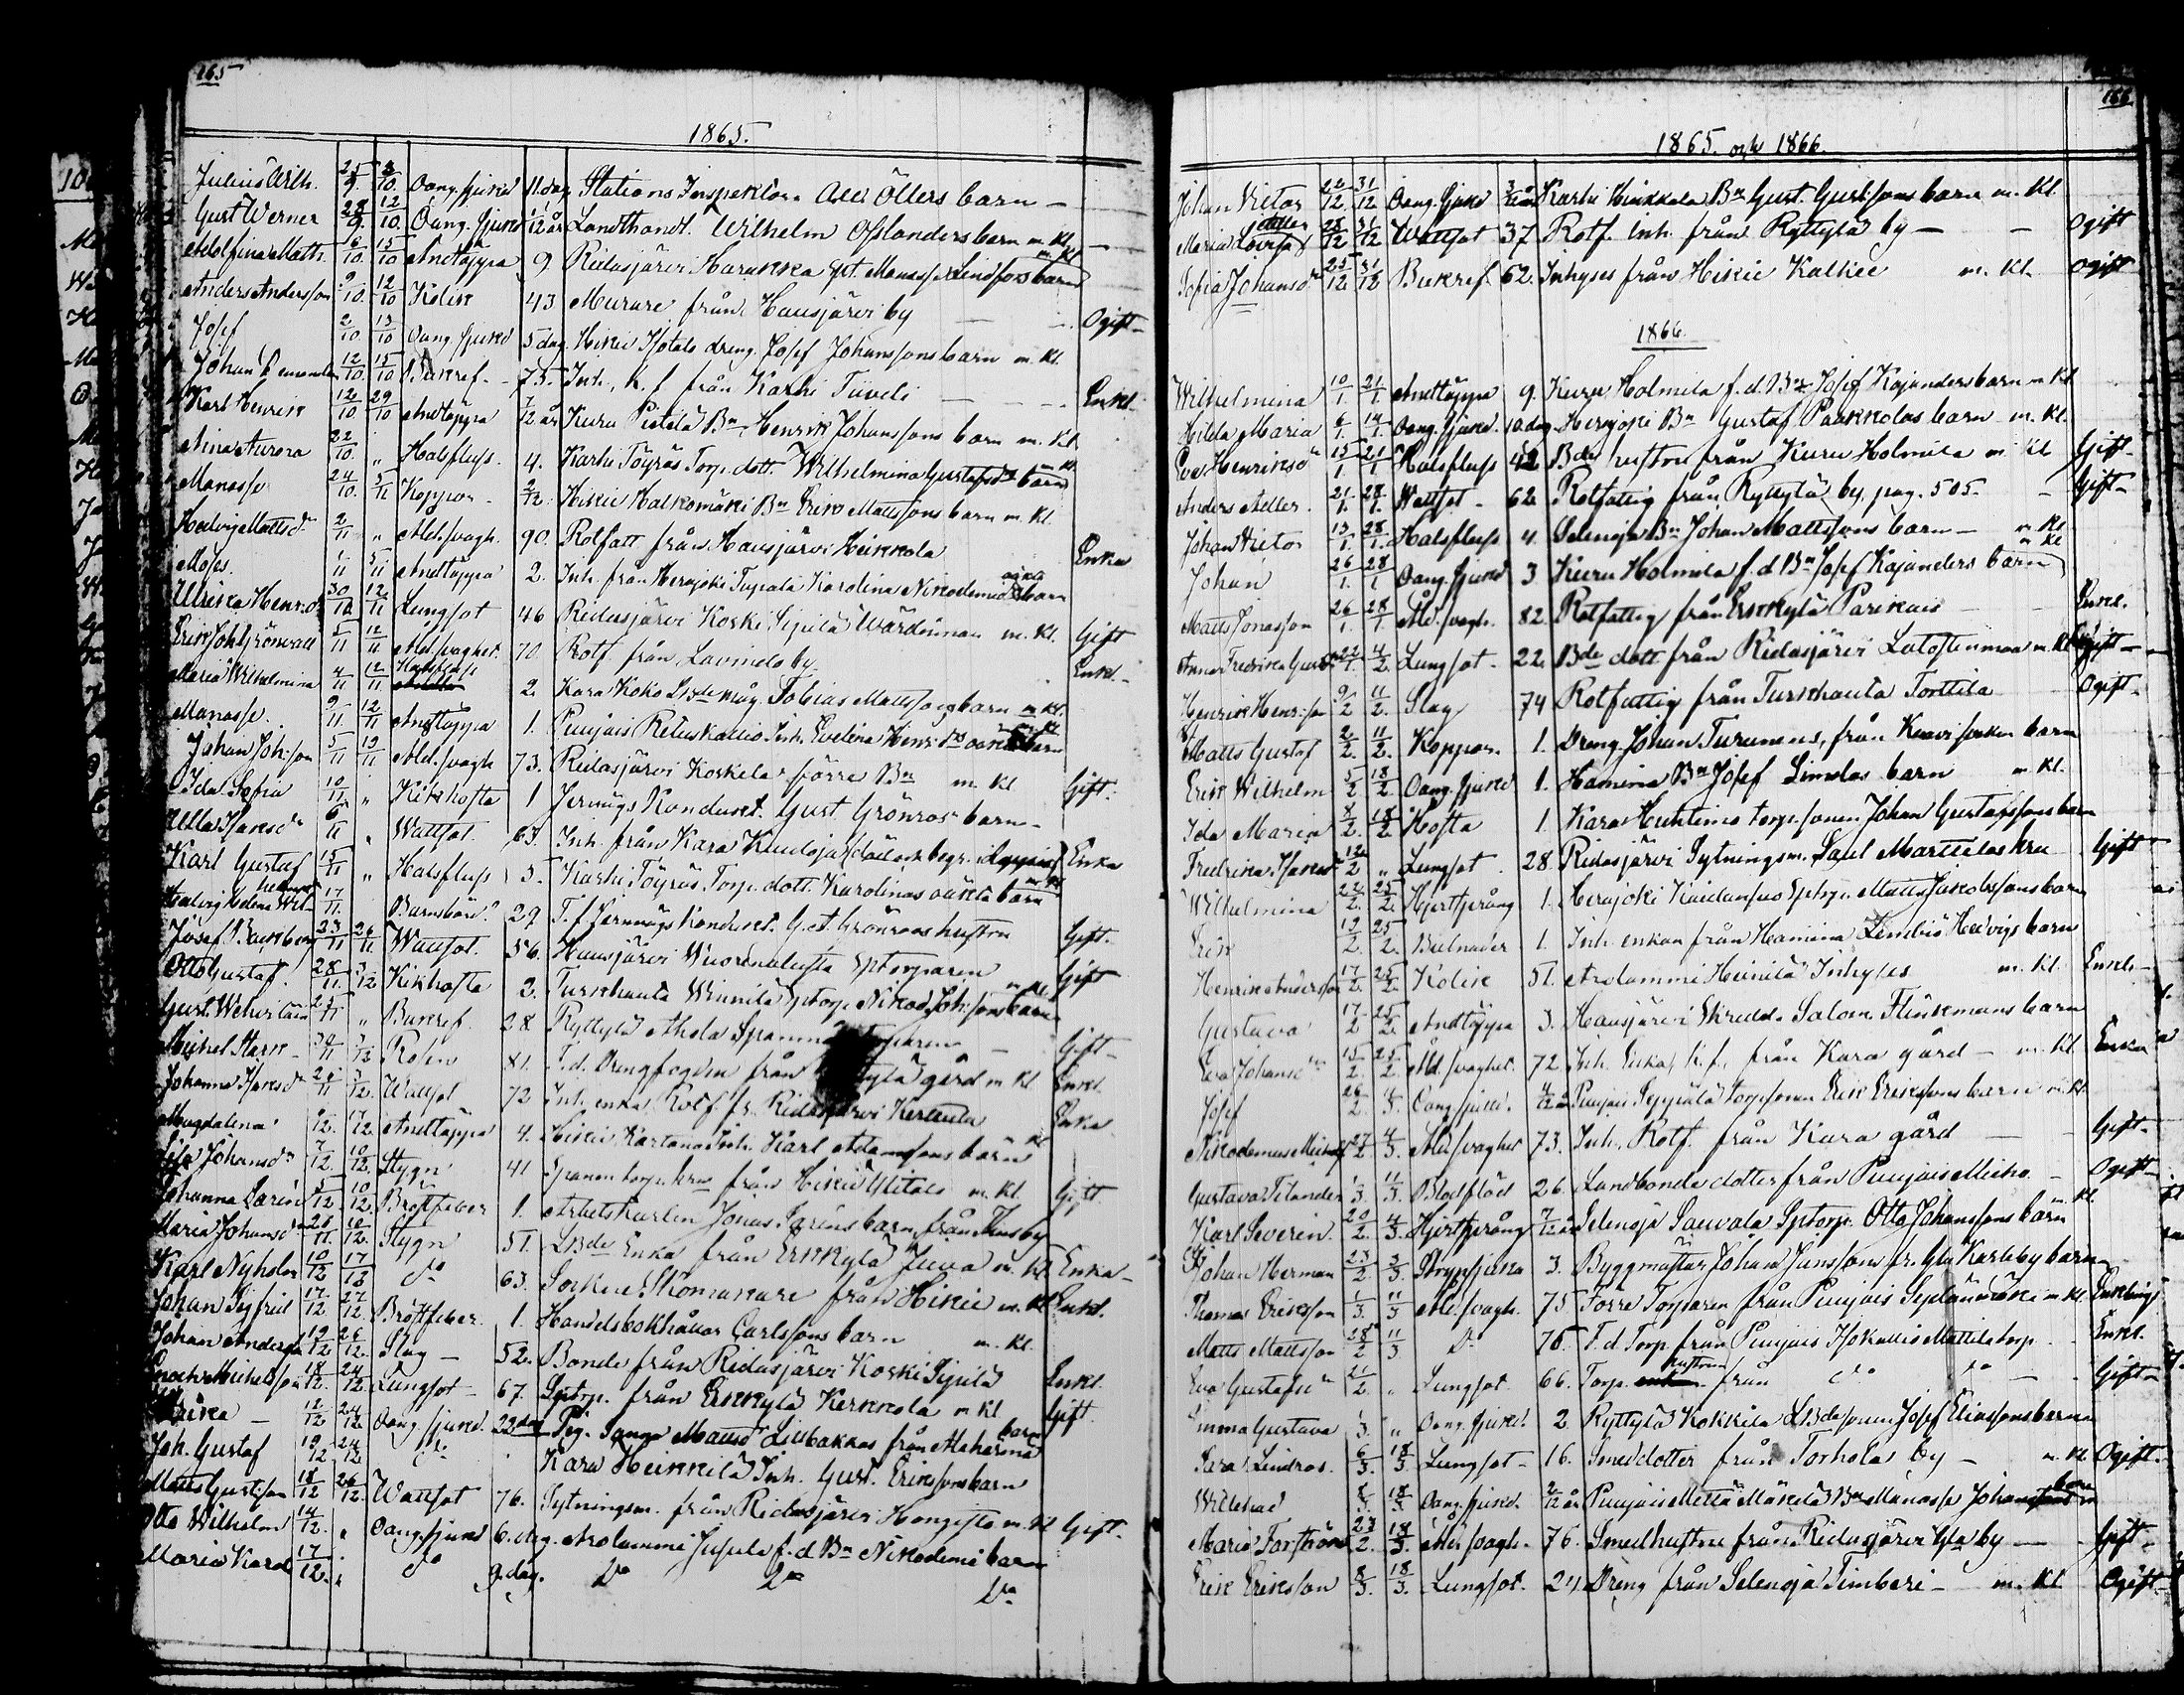 165
1865.
Julius Wilh. 25/9. 3/10. Oang. sjukd 11. dag Stations Inspektor. Öllers barn —
Gust Werner 28/9. 12/10. Oang. sjukd 1/12 år Landthandl. Wilhelm Osslanders barn m. Kl. —
Adolfina Math. 10/10. 15/10 Andtäppa 9 Ridasjärvi Harakka Manasse Lindfors barn m. Kl
Anders Andersson 9/10. 12/10 Kolik 43 Murare från Hausjärvi by — Ogift
Josef 2/10. 13/10 Oang. sjukd 5 dag. Hikiä Isotalo dreng. Josef Johanssons barn m. Kl.
Johan 12/10. 15/10 Bukref. 75. Inh. från Karhi Tuveli — Enkl.
Karl Henrik 12/10 29/10 Andtäppa 7/12 år Kuru Pietilä Bn Henrik Johanssons barn m. Kl.
Nina Aurora 22/10. „ Halsfluss. 4. Karhi Töyräs Torp. dott. Wilhelmina Gustafsdr barn m. Kl
Manasse 24/10. 5/11 Koppor. 2/12. Hikiä Halkomäki Bn Erik Mattssons barn m. Kl.
Hedvig Mattsdr 2/11 „ Ald. svagh. 90. Rotfatt från Hausjärvi Heikkola Enka
Moses. 1/11 5/11 Andtäppa 2. Inh. från Herajoki Tupala Karolina Nikodemusdr oäkta barn
Ulrika Henrsdr 30/10 12/11 Lungsot 46 Ridasjärvi Koski Sipilä Wärdinnan m. Kl. Gift
Erik Joh. Grönvall 5/11 12/11 Ald. svaghet. 70. Rotf. från Lavinda by. Enkl.
Maria Wilhelmina 4/11 12/11 Halsfluss 2. Kara Koko måg Tobias Mattssons barn m. Kl.
Manasse. 9/11 12/11 Andtäppa 1. Punjais Retuskallio Inh. Evelina Henr.drs oäkta barn m. Kl
Johan Joh:son 5/11 19/11 Ald. svagh 73. Ridasjärvi Koskela förre Bn m. Kl Gift.
Ida Sofia 10/11 „ Kikhosta 1 Jernvägs Kondukt. Gust. Grönroos barn —
Ulla Isaksdr 6/11 „ Wattsot. 63. Inh. från Kara Kuuloja (död och begr. i Enka
Karl Gustaf 15/11 „ Halsfluss 5. Karhi Töyräs Torp. dott. Karolinas oäkta barn m. Kl
Hedvig Helena 17/11. Barnsbörd. 29. T. f. Jernvägs Kondukt. G. A. Grönroos hustru Gift.
Josef 23/11 26/11 Wattsot. 56. Hausjärvi Wuorenalusta Sptorparen Gift
Otto Gustaf. 28/11. 3/12 Kikhosta 2. Turkhauta Winnilä Sptorp. Nikod. Joh.sons barn m. Kl.
Gust. 25/11 „ Bukref. 28 Ryttylä Ahola Spannmåls Torparen — Gift
Michel Stark 30/11 3/12 Rosen 81. F.d. Drengfogden från Ryttylä gård m Kl Enkl.
Johanna Isaksdr 26/11 3/12. Wattsot 72 Inh. enka. Rotf. fr. Ridasjärvi Kerttula Enka
Magdalena 9/12. 17/12. Andtäppa 4. Hikiä Kartano Inh. Karl Adamssons barn Kl
Lisa Johansdr 7/12. 10/12. Stygn 41 Spannm torp. hru från Hikiä Ylitalo m. Kl. Gift
Johanna Sarén 5/12. 10/12. Bröstfeber 1. Arbetskarlen Jonas Saréns barn, från by
Maria Johansdr 28/11. 10/12. Stygn 51. LBde Enka från Erkkylä Juva m. Kl. Enka
Karl Nyholm 10/12 17/12 do 63. Socken Skomakare från Hikiä m. Kl Enkl.
Johan Sigfrid 17/12 27/12 Bröstfeber. 1. Handelsbokhållar Carlssons barn m. Kl.
Johan Anderss. 19/12 26/12. Slag — 52. Bonde från Ridasjärvi Koski Sipilä Enkl.
Enoch Michelsson 18/12. 24/12. Lungsot — 67. Sptorp. från Erkkylä Kerkkola m Kl Gift.
Ulrika — 12/12 24/12 Oang. sjukd. 22 dag Pig. Sanna Mattsdr Liebakkas från Mahärmä barn
Joh. Gustaf 19/12 24/12 do Kara Heikkilä Inh. Gust. Erikssons barn
Matts Gustsson 18/12 26/12. Wattsot 76. Sytningsm. från Ridasjärvi Hongisto m. Kl Gift.
Otto Wilhelm 14/12. „ Oang. sjukd 6. dag. Arolammi Jussila f. d Bn Nikodemi barn
Maria Karol 17/12. „ do 9. dag. Do Do Do
166
1865. och 1866.
Johan Victor 22/12 31/12 Oang. sjukd 3/12 år Karhi Heikkola Bn Gust. Gustssons barn m. Kl.
Maria Lovisa Adler 28/12 31/12 Wattsot 37 Rotf. Inh. från Ryttylä by — Ogift
Sofia Johansdr 25/12. 31/12 Bukref. 62. Inhyses från Hikiä Kalkee m. Kl. Ogift
1866.
Wilhelmina 10/1. 21/1. Andtäppa 9. Kuru Holmila f. d. Bn Josef Kajanders barn m Kl
Hilda Maria 6/1. 14/1. Oang. sjukd. 10. dag. Herajoki Bn Gustaf Paakkolas barn m. Kl.
Eva Henriksdr 15/1 21/1 Halsfluss 42 Bde hustru från Kuru Holmila m Kl Gift
Anders Adler. 21/1. 28/1. Wattsot 62 Rotfattig från Ryttylä by, pag. 505. — Gift
Johan Victor 13/1. 28/1. Halsfluss 4. Selenoja Bn Johan Mattssons barn — m Kl.
Johan 26/1. 28/1 Oang. sjukd. 3 Kuru Holmila f. d Bn Josef Kajanders barn m Kl
Matts Jonasson 26/1. 28/1 Åld. svagh. 82. Rotfattig från Erkkylä Parikas Enkl.
Anna Fredrika Gustdr 22/1. 4/2. Lungsot 22. Bde dott från Ridasjärvi Latostenmaa m. Kl Ogift
Henrik Henr:son 9/2 11/2. Slag 74 Rotfattig från Turkhauta Torttila Ogift
Matts Gustaf 2/2. 11/2. Koppor. 1. Dreng Johan Turunens, från socken barn
Erik Wilhelm 5/2 18/2. Oang. sjukd 1. Hamina Bn Josef Simolas barn m Kl.
Ida Maria 8/2. 18/2. Hosta 1. Kara Huhtimo torp. sonen Johan Gustafssons barn
Fredrika Isaksdr 12/2 „ Lungsot. 28. Ridasjärvi Sytningsm. Saul Marttilas hru Gift
Wilhelmina 22/2. 25/2. Hjertsprång 1. Herajoki Kaidansuo Sptorp. Matts Jakobssons barn
Erik 19/2. 25/2. Bulnader 1. Inh. enkan från Hamina Sembio Hedvigs barn
Henrik Andersson 17/2. 25/2. Kolik 51. Arolammi Heinilä Inhyses m. Kl. Enkl.
Gustava 17/2 25/2. Andtäppa 3. Hausjärvi Skredd. Salom. Flinkmans barn
Eva Johansdr 15/2. 25/2. Åld. svaghet. 72. Inh. Enka, från Kara gård — m. Kl Enka
Josef 26/2. 4/3. Oang. sjukd. 4/12 år Punjais Seppälä torp. sonen Erik Erikssons barn m. Kl.
Nikodemus Michelss. 27/2. 4/3. Ald. svaghet 73. Inh. Rotf. från Kara gård — Gift
Gustava Tilander 1/3. 11/3. Blodflöd 26. Landbonde dotter från Punjais Meiko — Ogift
Karl Severin. 20/2. 4/3. Hjertsprång 7/12 år Selenoja Sauvala Sptorp. Otto Johanssons barn Kl
Johan Herman 23/2. 3/3. Strypsjuka 3. Byggmästar Johan Janssons fr. Gla Karleby barn
Thomas Eriksson 1/3. 11/3 Ald. svagh. 75 Förre Torparen från Punjais Sepänmäki m Kl. Enkling
Matts Mattsson 28/2 11/3 Do 76. F. d. Torp. från Punjais Isokallio Mattila torp Enkl.
Eva Gustafsdr 21/2. „ Lungsot. 66. Torp. hustrun från do do — Gift
Emma Gustava 1/3. „ Oang. sjukd. 2 Ryttylä Kokkila LBdesonen Josef Eliassons barn
Sara Lindroos. 6/3. 18/3. Lungsot 16. Smed dotter från Torhola by — m. Kl. Ogift
8/3. 18/3. Oang. sjukd. 2/12 år Punjais Mettä Mäkelä Bn Manasse Johanssons barn
Maria Forsström 23/2. 18/3. Ald. svagh. 76. Smedhustru från Ridasjärvi Gla by — Gift
Erik Eriksson 8/3. 18/3. Lungsot. 24. Dreng från Selenoja Timberi — m. Kl Ogift